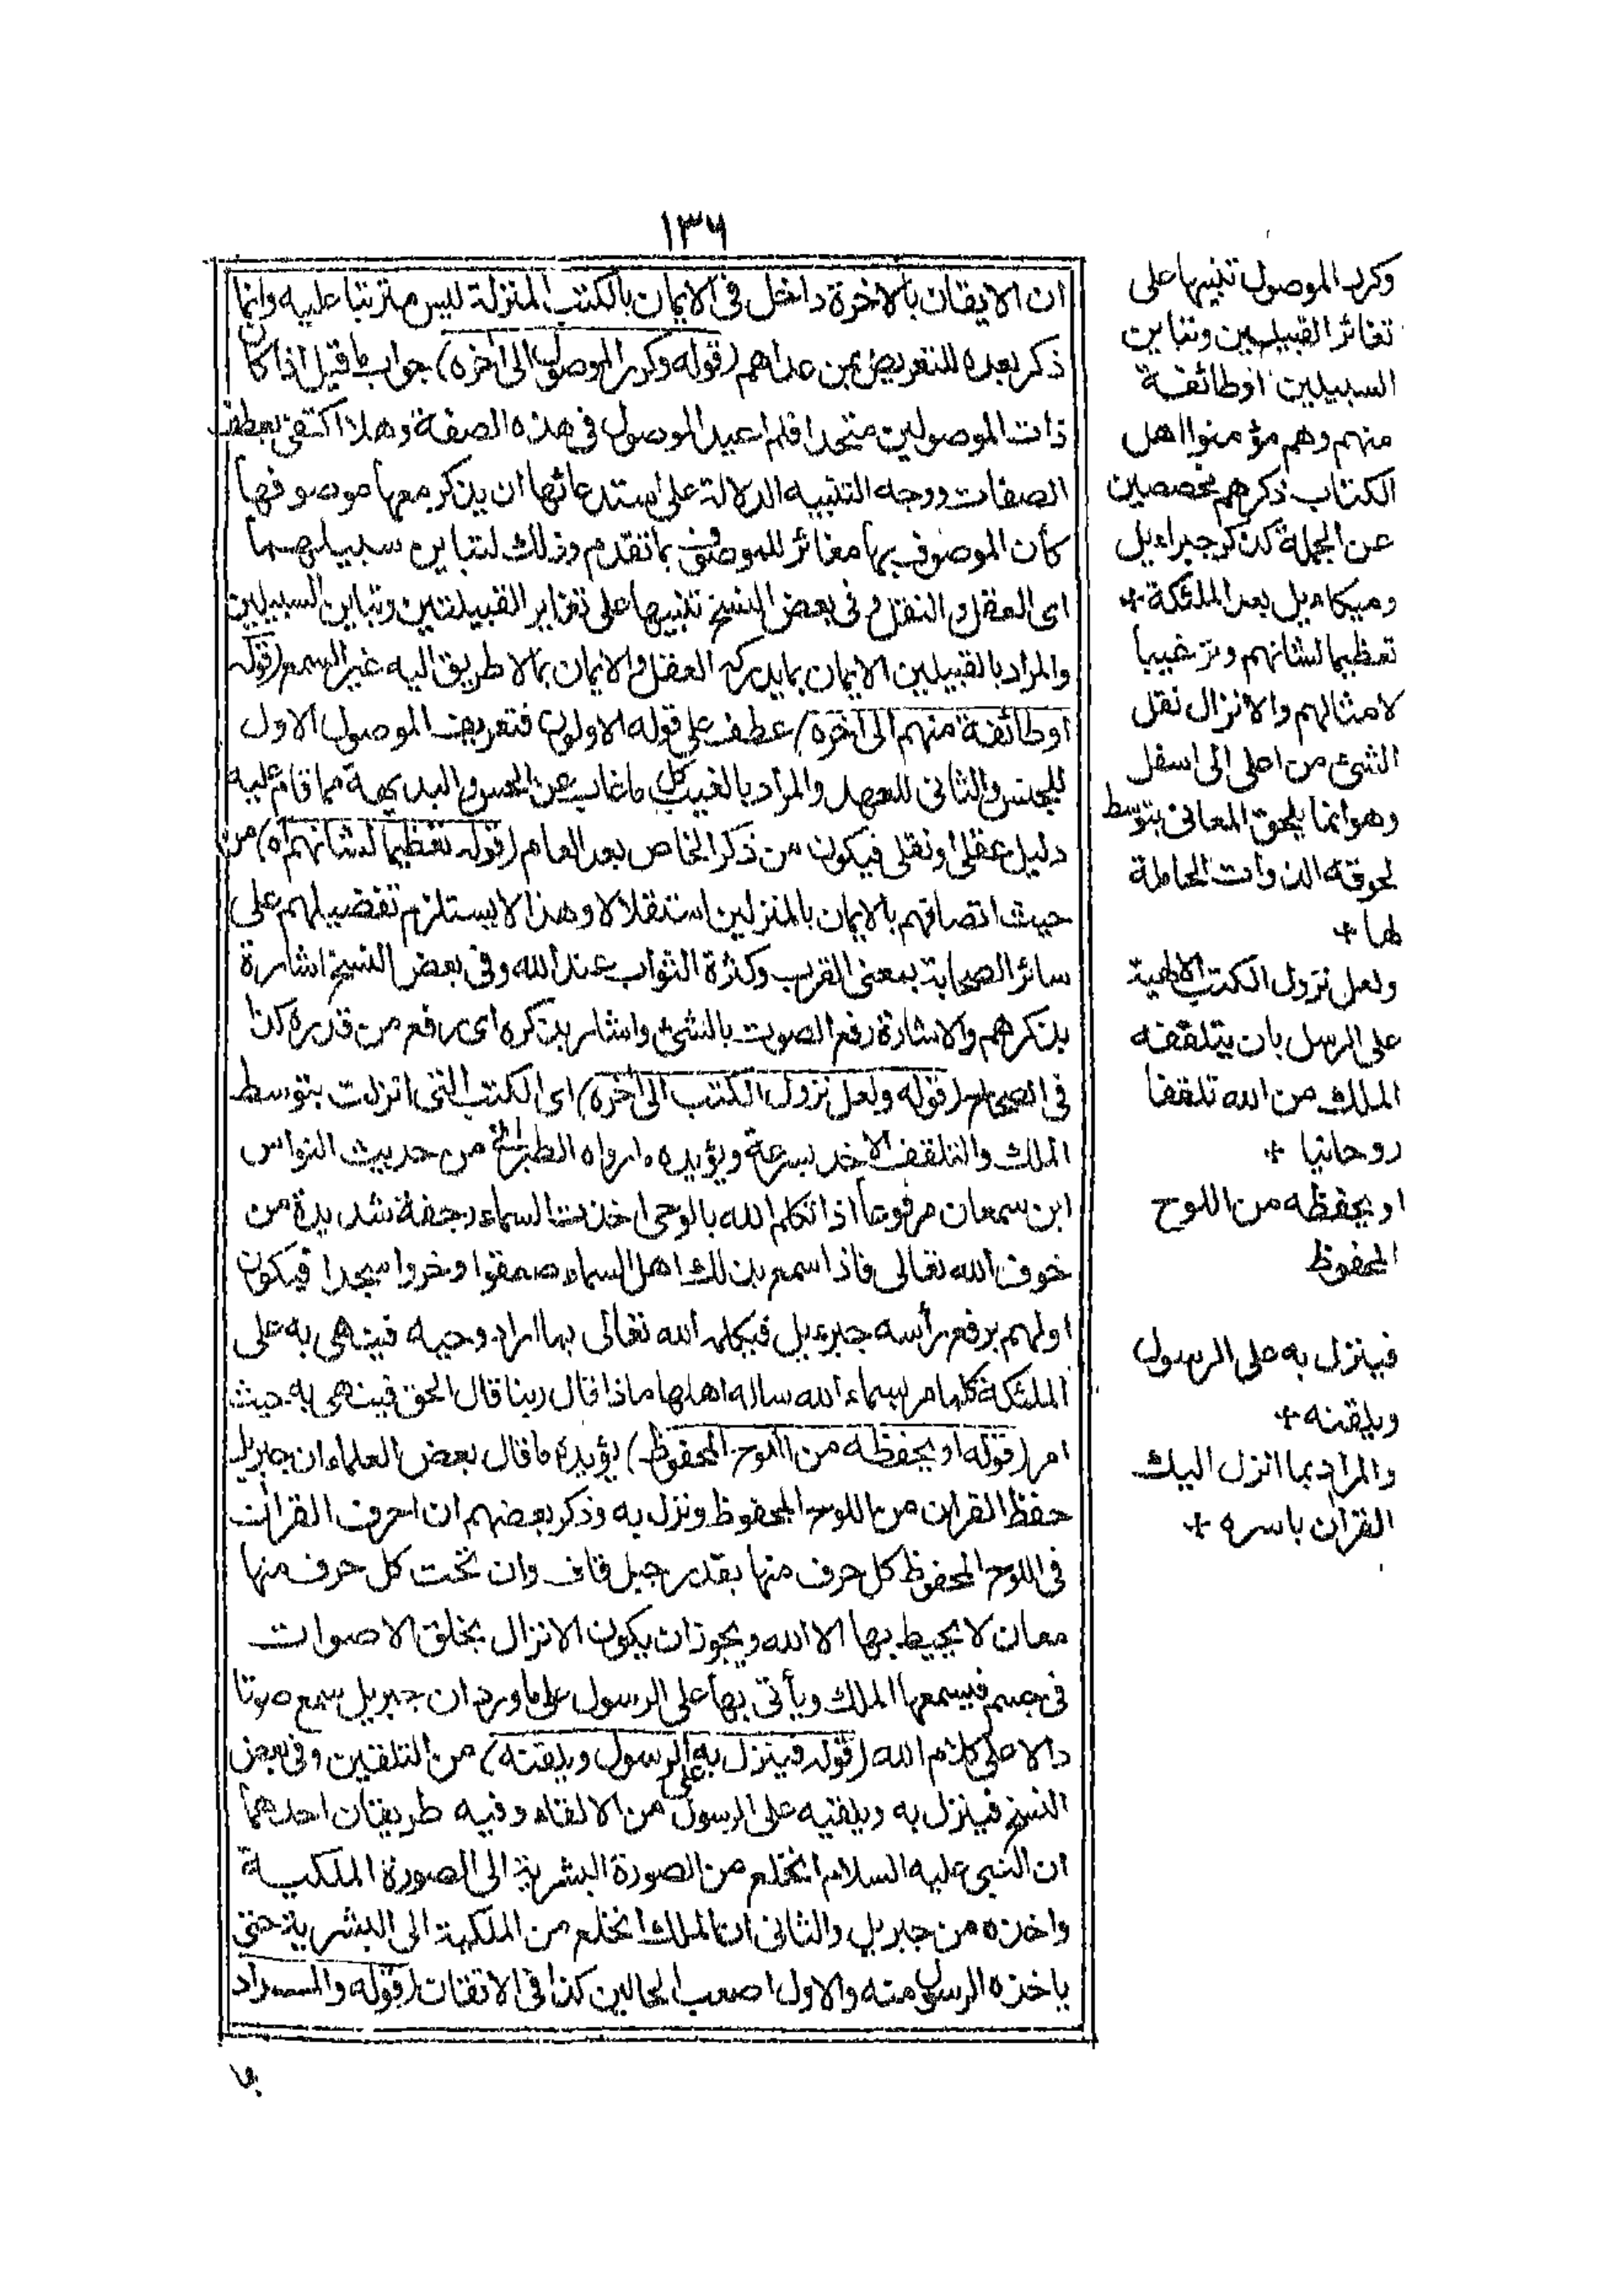 ١٣٦
ان الايقان بالاخرة داخل فى الايمان بالكتب المنزلة ليس مترتبا عليه وانما
ذكر بعده للتعريض بمن عداهم (قوله وكرر الموصول الى آخره) جواب ما قيل اذا كان
ذات الموصولين متحدا فلم اعيد الموصول فى هذه الصفة وهلا اكتفى بعطف
الصفات ووجه التنبيه الدلالة على استدعائها ان يذكر معها موصوفها
كأن الموصوف بها مغائر للموصوف بما تقدم وذلك لتباين سبيلهما
اى العقل والنقل وفى بعض النسخ تنبيها على تغاير القبيلتين وتباين السبيلين
والمراد بالقبيلين الايمان بما يدركه العقل والايمان بما لا طريق اليه غير السمع (قوله
اوطائفة منهم الى آخره) عطف على قوله الاولون فتعريف الموصول الاول
للجنس والثانى للعهد والمراد بالغيب كل ما غاب عن الحس والبديهة مما قام عليه
دليل عقلى او نقلى فيكون من ذكر الخاص بعد العام (قوله تعظيما لشانهم آه) من
حيث اتصافهم بالايمان بالمنزلين استقلالا وهذا لا يستلزم تفضيلهم على
سائر الصحابة بمعنى القرب وكثرة الثواب عند الله وفى بعض النسخ اشارة
بذكرهم والاشارة رفع الصوت بالشئ واشار بذكره اى رفع من قدره كذا
فى الصحاح (قوله ولعل نزول الكتب الى آخره) اى الكتب التى انزلت بتوسط
الملك والتلقف الاخذ بسرعة ويؤيده ما رواه الطبرانى من حديث النواس
ابن سمعان مرفوعا اذا تكلم الله بالوحى اخذت السماء رجفة شديدة من
خوف الله تعالى فاذا سمع بذلك اهل السماء صعقوا وخروا سجدا فيكون
اولهم يرفع رأسه جبرءيل فيكلمه الله تعالى بما اراد وحيه فينتهى به على
الملئكة كلما مر بسماء الله ساله اهلها ماذا قال ربنا قال الحق فينتهى به حيث
امر (قوله او يحفظه من اللوح المحفوظ) يؤيده ما قال بعض العلماء ان جبريل
حفظ القران من اللوح المحفوظ ونزل به وذكر بعضهم ان احرف القرآن
فى اللوح المحفوظ كل حرف منها بقدر جبل قاف وان تحت كل حرف منها
معان لا يحيط بها الا الله ويجوز ان يكون الانزال بخلق الاصوات
فى جسم فيسمعها الملك ويأتى بها على الرسول على ما ورد ان جبريل سمع صوتا
دالا على كلام الله (قوله فينزل به على الرسول ويلقنه) من التلقين وفى بعض
النسخ فينزل به ويلقيه على الرسول من الالقاء وفيه طريقان احدهما
ان النبى عليه السلام انخلع من الصورة البشرية الى الصورة الملكية
واخذه من جبريل والثانى ان الملك انخلع من الملكية الى البشرية حتى
ياخذه الرسول منه والاول اصعب الحالين كذا فى الاتقان (قوله والمراد
وكرر الموصول تنبيها على
تغائر القبيلين وتباين
السبيلين اوطائفة
منهم وهم مؤمنوا اهل
الكتاب ذكرهم مخصصين
عن الجملة كذكر جبراءيل
وميكاءيل بعد الملئكة +
تعظيما لشانهم وترغيبا
لامثالهم والانزال نقل
الشئ من اعلى الى اسفل
وهو انما يلحق المعانى بتوسط
لحوقه الذوات الحاملة
لها +
ولعل نزول الكتب الالهية
على الرسل بان يتلقفه
الملك من الله تلقفا
روحانيا +
او يحفظه من اللوح
المحفوظ
فينزل به على الرسول
ويلقنه +
والمراد بما انزل اليك
القرآن باسره +
بما